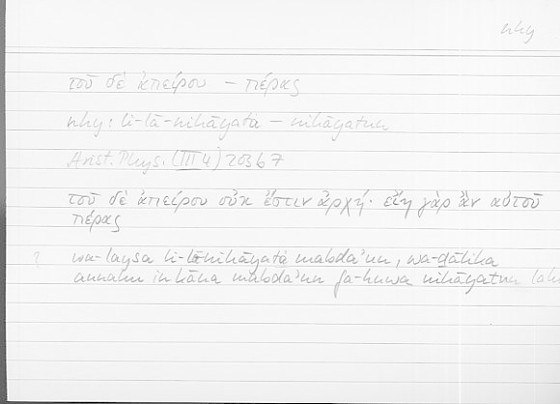 nhy
τοῦ δὲ ἀπείρου – πέρας
nhy: li-lā-nihāyata – nihāyatun
Arist. Phys. (III 4) 203b7
τοῦ δὲ ἀπείρου οὐκ ἔστιν ἀρχή· εἴη γὰρ ἂν αὐτοῦ
πέρας
wa-laysa li-lā-nihāyata mabda'un, wa-ḏālika
annahu in kāna mabda'un fa-huwa nihāyatun lahu